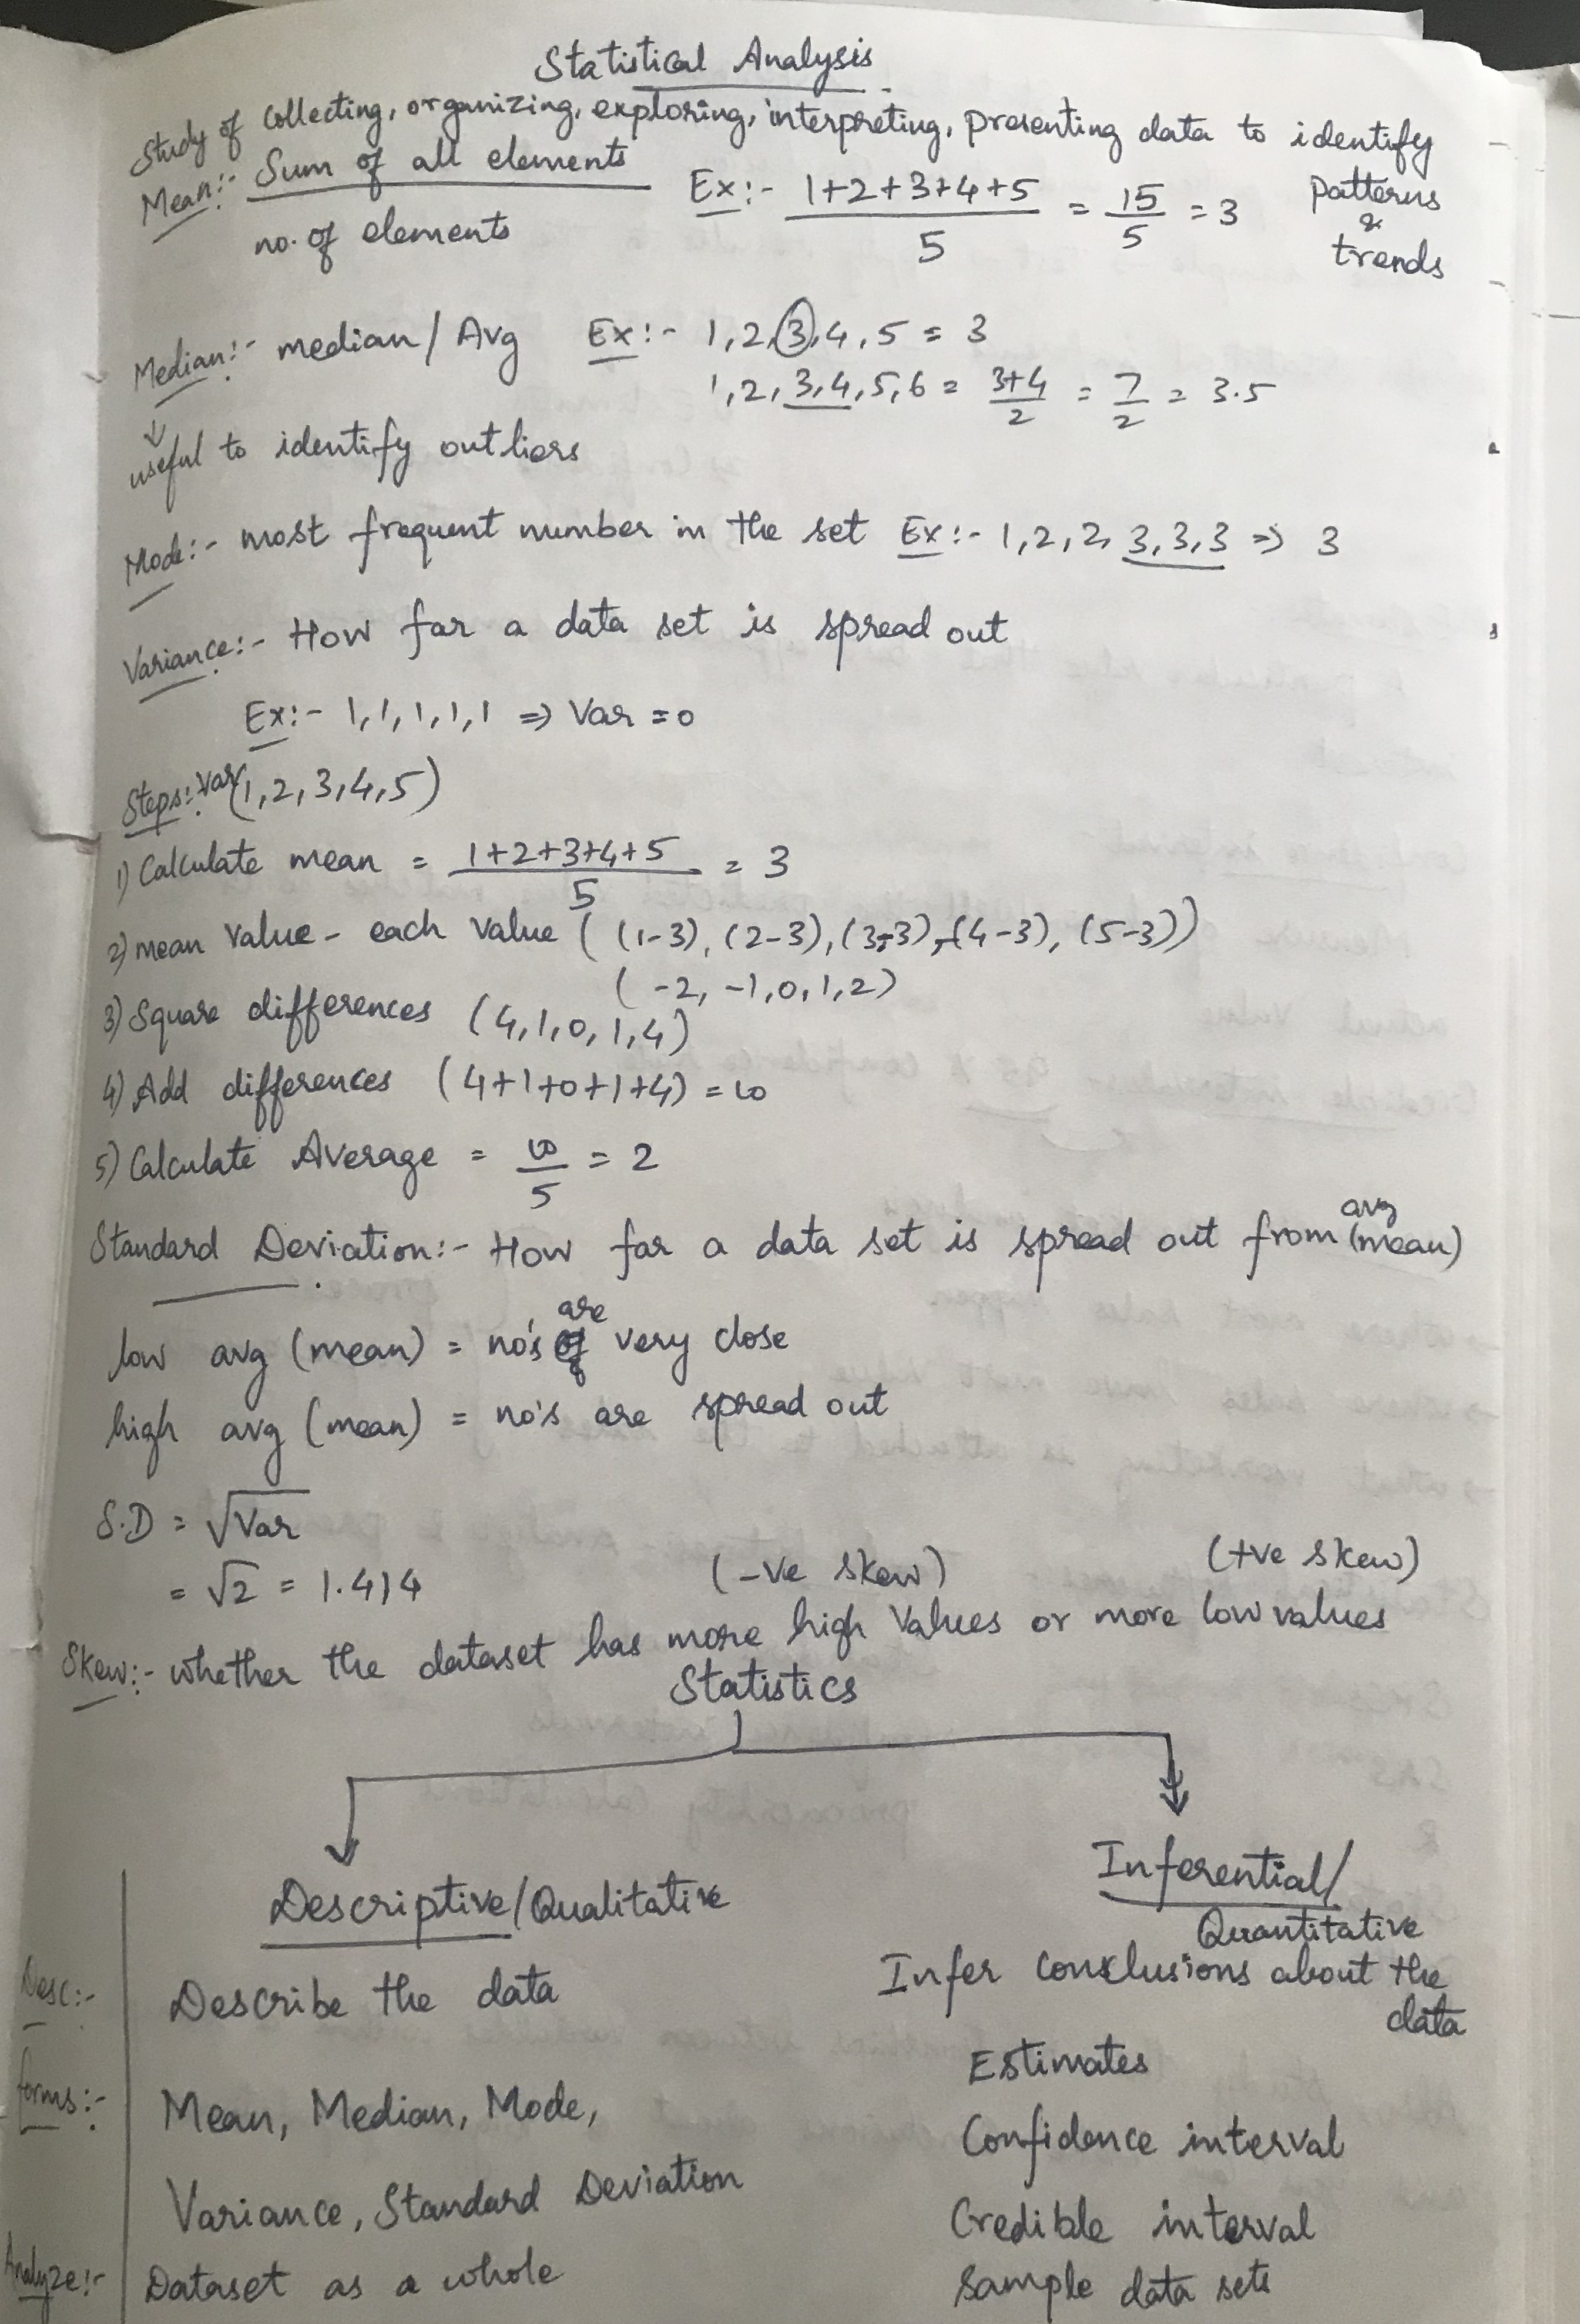 Statistical Analysis
Study of collecting, organizing, exploring, interpreting, presenting data to identify
patterns
&
trends
Mean:- Sum of all elements / no. of elements Ex:- 1+2+3+4+5 / 5 = 15/5 = 3
Median:- median/Avg Ex:- 1,2,3,4,5 = 3
1,2,3,4,5,6 = 3+4/2 = 7/2 = 3.5
↓
useful to identify outliers
Mode:- most frequent number in the set Ex:- 1,2,2,3,3,3 => 3
Variance:- How far a data set is spread out
Ex:- 1,1,1,1,1 => Var = 0
Steps: Var(1,2,3,4,5)
1) Calculate mean = 1+2+3+4+5 / 5 = 3
2) mean value - each value ((1-3), (2-3), (3-3), (4-3), (5-3))
(-2, -1, 0, 1, 2)
3) Square differences (4,1,0,1,4)
4) Add differences (4+1+0+1+4) = 10
5) Calculate Average = 10/5 = 2
Standard Deviation:- How far a data set is spread out from avg (mean)
low avg (mean) = no's are very close
high avg (mean) = no's are spread out
S.D = √Var
= √2 = 1.414
(-ve skew) (+ve skew)
Skew:- whether the dataset has more high values or more low values
Statistics
Descriptive/Qualitative Inferential/
Quantitative
Desc:- Describe the data Infer conclusions about the
data
forms:- Mean, Median, Mode, Estimates
Confidence interval
Variance, Standard Deviation Credible interval
Analyze:- Dataset as a whole Sample data sets